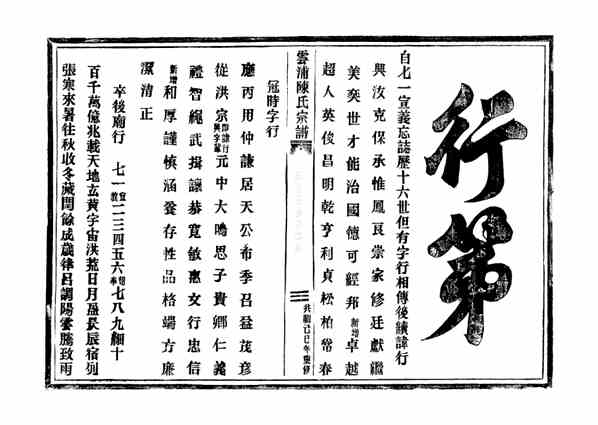 行第
自七一宣義忘誌歷十六世但有字行相傳後續諱行
興汝克保承惟鳳良崇家修廷獻繼
美奕世才能治國德可經邦新增卓越
超人英俊昌明乾亨利貞松柏常春
雲浦陳氏宗譜
冠時字行
應丙用仲謙居天公布季召益茂彥
從洪宗即諱行興字輩元中大鳴思子貴卿仁義
禮智繩武揖讓恭寬敏惠文行忠信
新增和厚謹慎涵養存性品格端方廉
潔清正
卒後廟行 七一宣教二三四五六七八九細十
百千萬億兆載天地玄黃宇宙洪荒日月盈昃辰宿列
張寒來暑往秋收冬藏閏餘成歲律呂調陽雲騰致雨